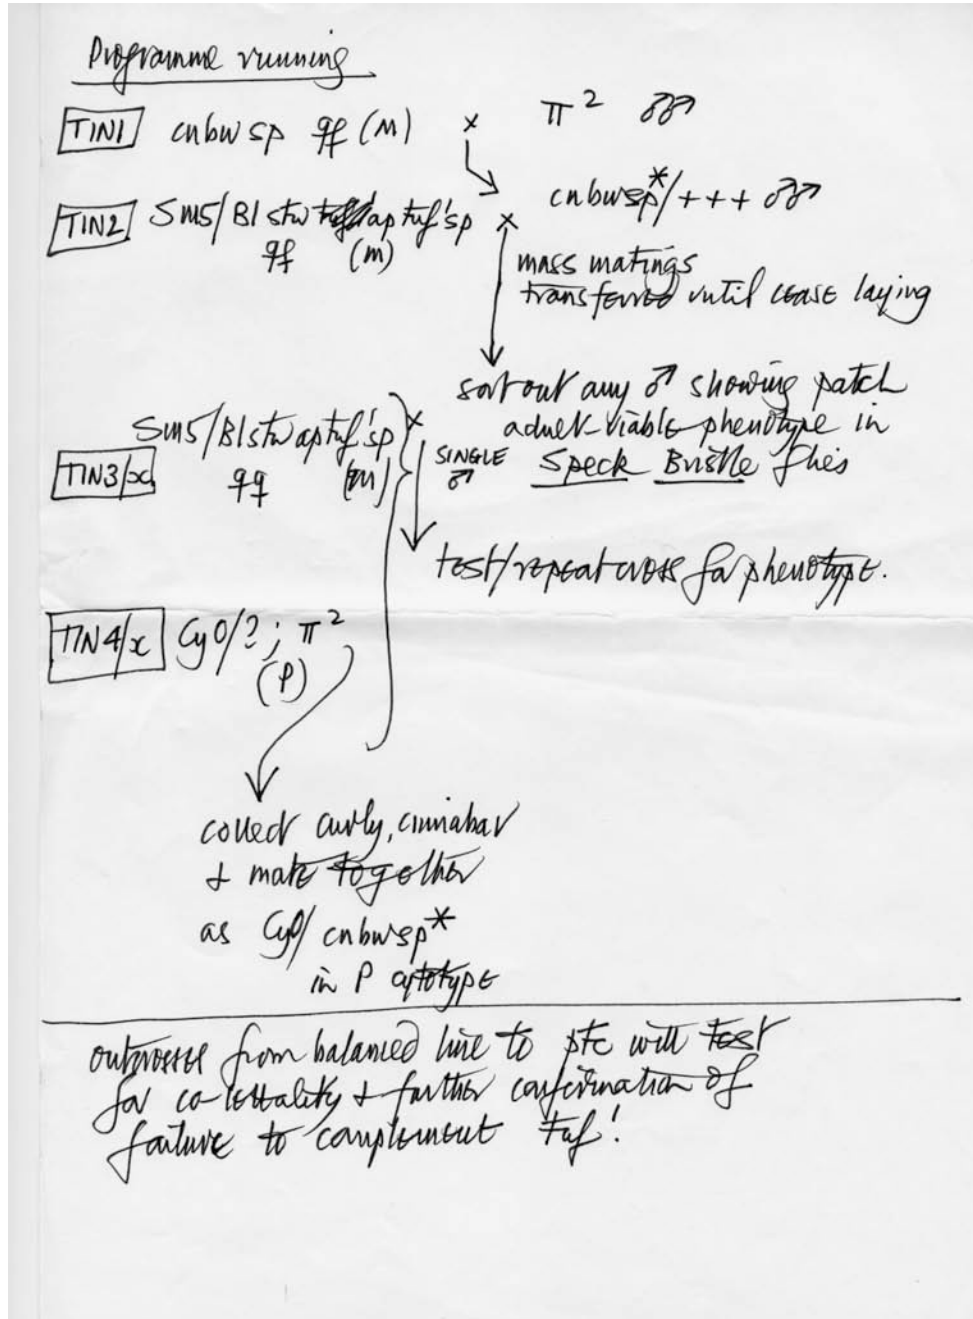 Programme running
TIN1 cnbw sp ♀♀ (M) × π² ♂♂
cnbwsp*/+++ ♂♂
TIN2 Sm5/Bl stw ap tuf'sp ×
♀♀ (M)
mass matings
transferred until cease laying
sort out any ♂ showing patch
adult-viable phenotype in
Speck Bristle flies
Sm5/Bl stw ap tuf'sp ×
TIN3/x ♀♀ (M) SINGLE ♂
test/repeat cross for phenotype.
TIN4/x CyO/?; π²
(P)
collect curly, cinnabar
+ mate together
as CyO/cnbwsp*
in P cytotype
outcrosses from balanced line to ptc will test
for co-lethality + further confirmation of
failure to complement tuf'.